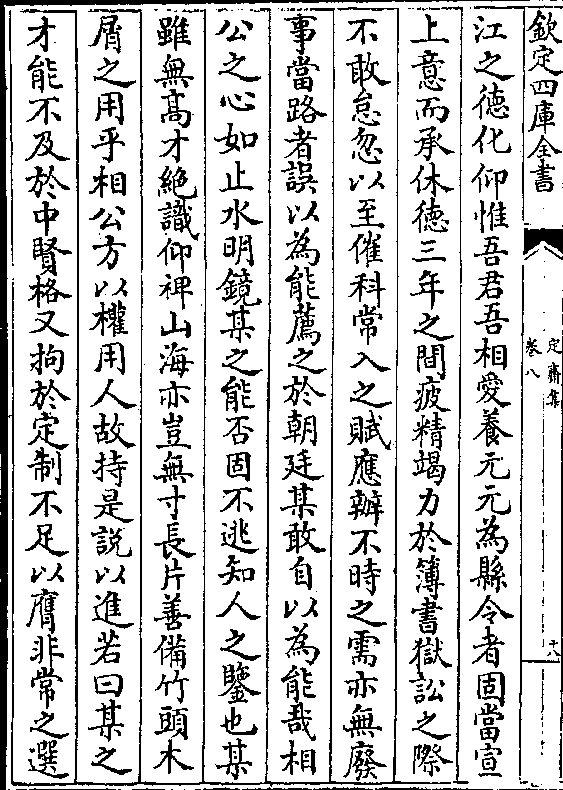 欽定四庫全書
定齋集
卷八
十八
江之徳化仰惟吾君吾相愛養元元為縣令者固當宣
上意而承休徳三年之間疲精竭力於簿書獄訟之際
不敢怠忽以至催科常入之賦應辦不時之需亦無廢
事當路者誤以為能薦之於朝廷某敢自以為能哉相
公之心如止水明鏡某之能否固不逃知人之鑒也某
雖無髙才絶識仰裨山海亦豈無寸長片善備竹頭木
屑之用乎相公方以權用人故持是説以進若曰某之
才能不及於中賢格又拘於定制不足以膺非常之選